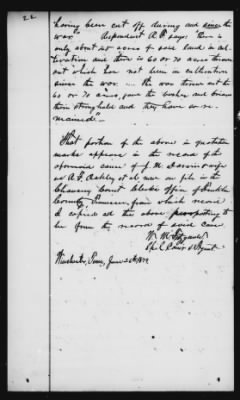 22
having been cut off during and since the
war." Respondent A. F. says: "There is
only about 25 acres of said land in cul-
tivation and there is 60 or 70 acres thrown
out which has not been in cultivation
since the war. — the war threw out the
60 or 70 acres, gave the bushes and briars
them stronghold and they have so re-
mained" —
That portion of the above in quotation
marks appears in the record of the
aforesaid cause of J. M. and wife
vs A. F. et al now on file in the
Chancery Court Clerk's office of Franklin
County, Tennessee, from which record
I copied all the above purporting to
be from the record of said case
W. M.
Winchester, Tenn, June